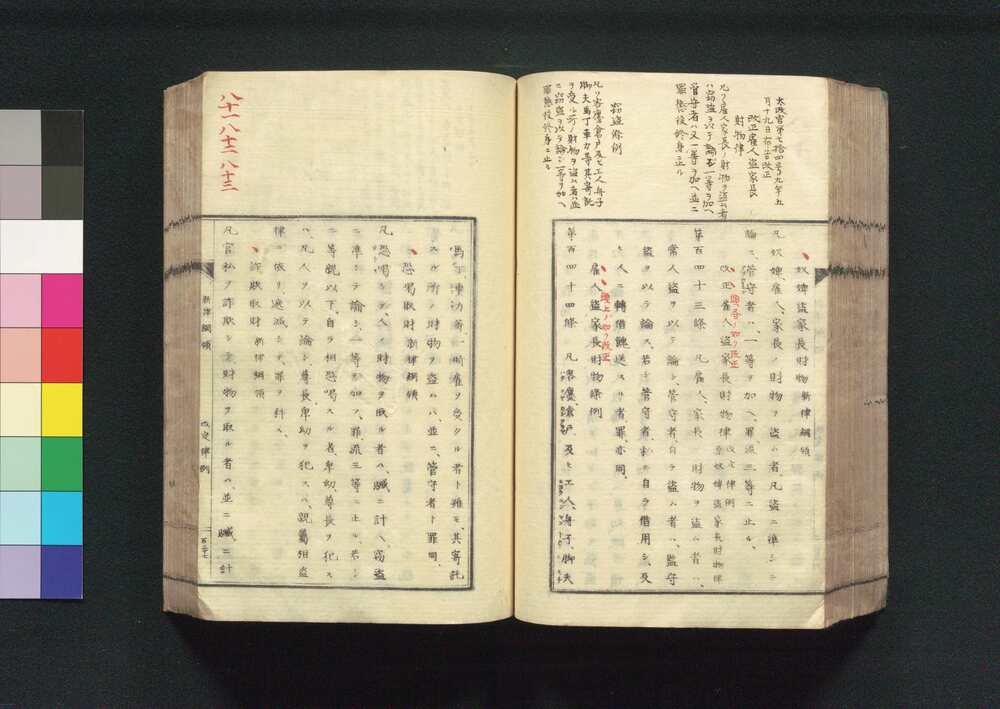 太政官第七拾四号九年五
月十九日布告改正
改正雇人盗家長
財物律
凡ソ雇人家長ノ財物ヲ盗ム者
ハ窃盗ヲ以テ論シ一等ヲ加ヘ
管守者ハ又一等ヲ加ヘ並ニ
罪懲役終身ニ止ル
窃盗條例
凡ソ客店倉戸及ヒ工人舟子
脚夫馬丁車力等其寄託
ヲ受ル所ノ財物ヲ盗ム者ハ並
ニ窃盗ヲ以テ論シ一等ヲ加ヘ
罪懲役終身ニ止ル
奴婢盗家長財物 新律綱領
凡奴婢雇人、家長ノ財物ヲ盗ム者、凡盗ニ準シテ
論シ、管守者ハ、一等ヲ加ヘ、罪流三等ニ止ル、
頭書ノ如ク改正
改正雇人盗家長財物律 改定律例 原奴婢盗家長財物律
第百四十三條 凡雇人、家長ノ財物ヲ盗ム者ハ、
常人盗ヲ以テ論シ、管守者、自ラ盗ム者ハ、監守
盗ヲ以テ論ス、若シ管守者、私ニ自ラ借用シ、及
ヒ人ニ轉借スル者、罪亦同、
頭上ノ如ク改正
雇人盗家長財物條例
第百四十四條 凡客店、倉戸、及ヒ工人、舟子、脚夫
馬丁、車力等、一時雇ヲ受クル者ト雖モ、其寄託
スル所ノ財物ヲ盗ムハ、並ニ管守者ト罪同、
恐喝取財 新律綱領
凡恐喝シテ、人ノ財物ヲ取ル者ハ、贓ニ計ヘ、窃盗
ニ準シテ論シ、一等ヲ加フ、罪流三等ニ止ル、若シ
二等親以下、自ラ相恐喝スル者、卑幼、尊長ヲ犯ス
ハ、凡人ヲ以テ論シ、尊長、卑幼ヲ犯スハ、親屬相盗
律ニ依リ、逓減シテ、罪ヲ科ス、
詐欺取財 新律綱領
凡官私ヲ詐欺シテ財物ヲ取ル者ハ、並ニ贓ニ計
新律綱領
改定律例
二百三十七
八十一 八十二 八十三